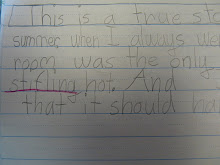 This is a true sto
summer, when I always we
room was the only
stifling hot. And
that it should ha